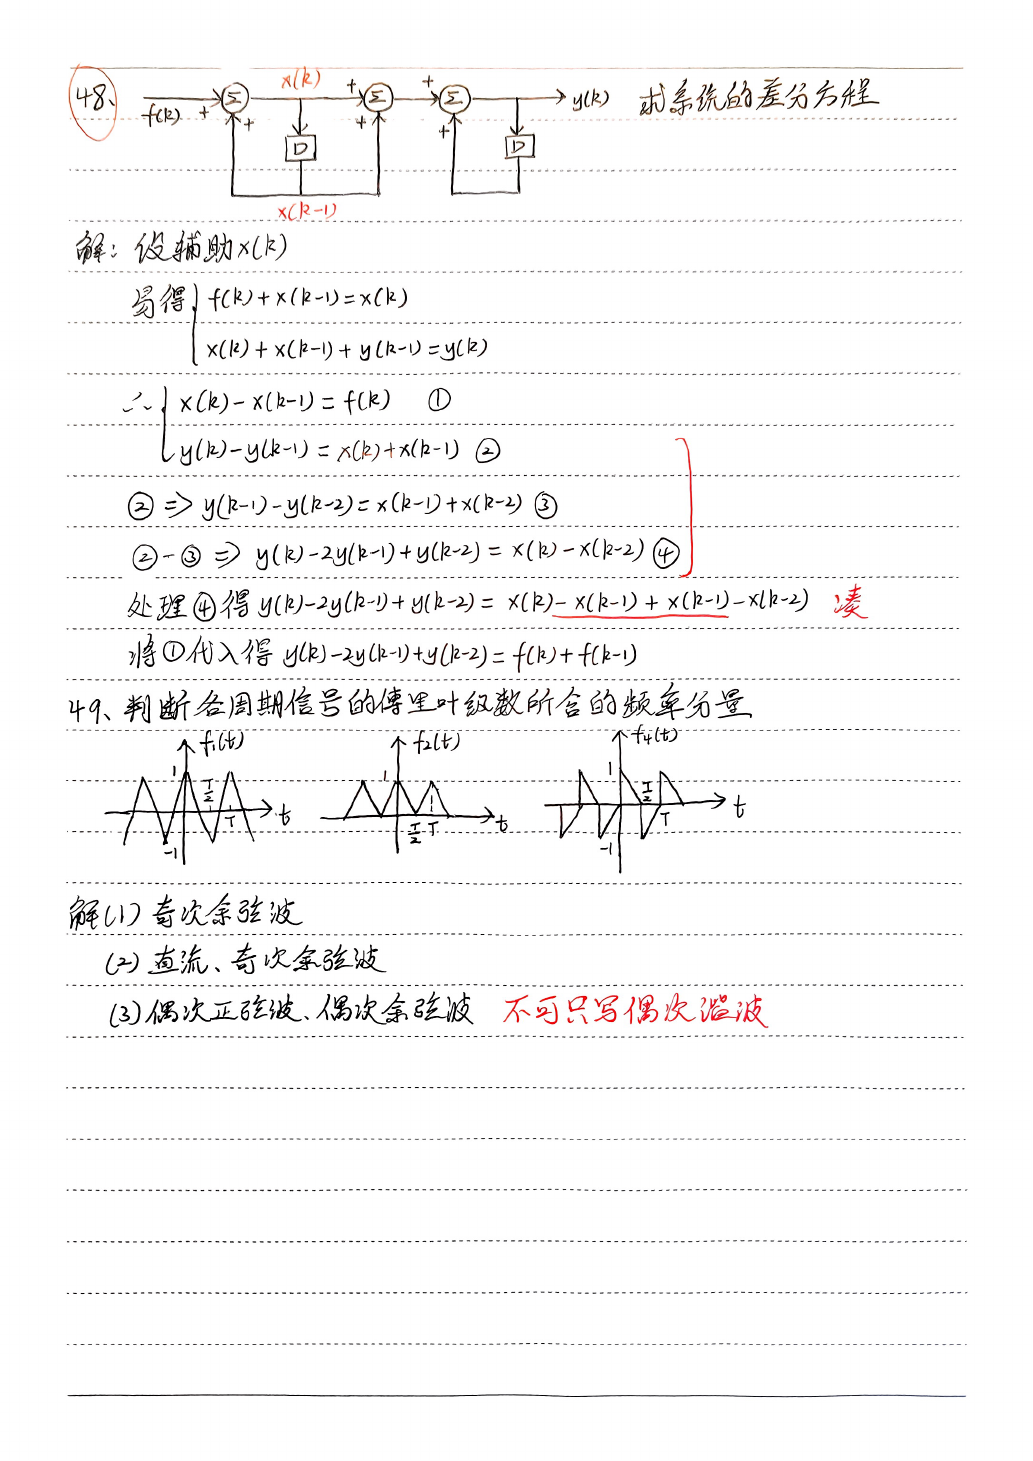 48、 f(k) + Σ + x(k) D x(k-1) + Σ + + Σ + D y(k) 求系统的差分方程
解：设辅助x(k)
易得 f(k)+x(k-1)=x(k)
x(k)+x(k-1)+y(k-1)=y(k)
∴ x(k)-x(k-1)=f(k) ①
y(k)-y(k-1)=x(k)+x(k-1) ②
②⇒ y(k-1)-y(k-2)=x(k-1)+x(k-2) ③
②-③⇒ y(k)-2y(k-1)+y(k-2)=x(k)-x(k-2) ④
处理④得 y(k)-2y(k-1)+y(k-2)=x(k)-x(k-1)+x(k-1)-x(k-2) 凑
将①代入得 y(k)-2y(k-1)+y(k-2)=f(k)+f(k-1)
49、判断各周期信号的傅里叶级数所含的频率分量
f₁(t) 1 T/2 T -1 t
f₂(t) 1 T/2 T t
f₄(t) 1 T/2 T -1 t
解(1) 奇次余弦波
(2) 直流、奇次余弦波
(3) 偶次正弦波、偶次余弦波 不可只写偶次谐波